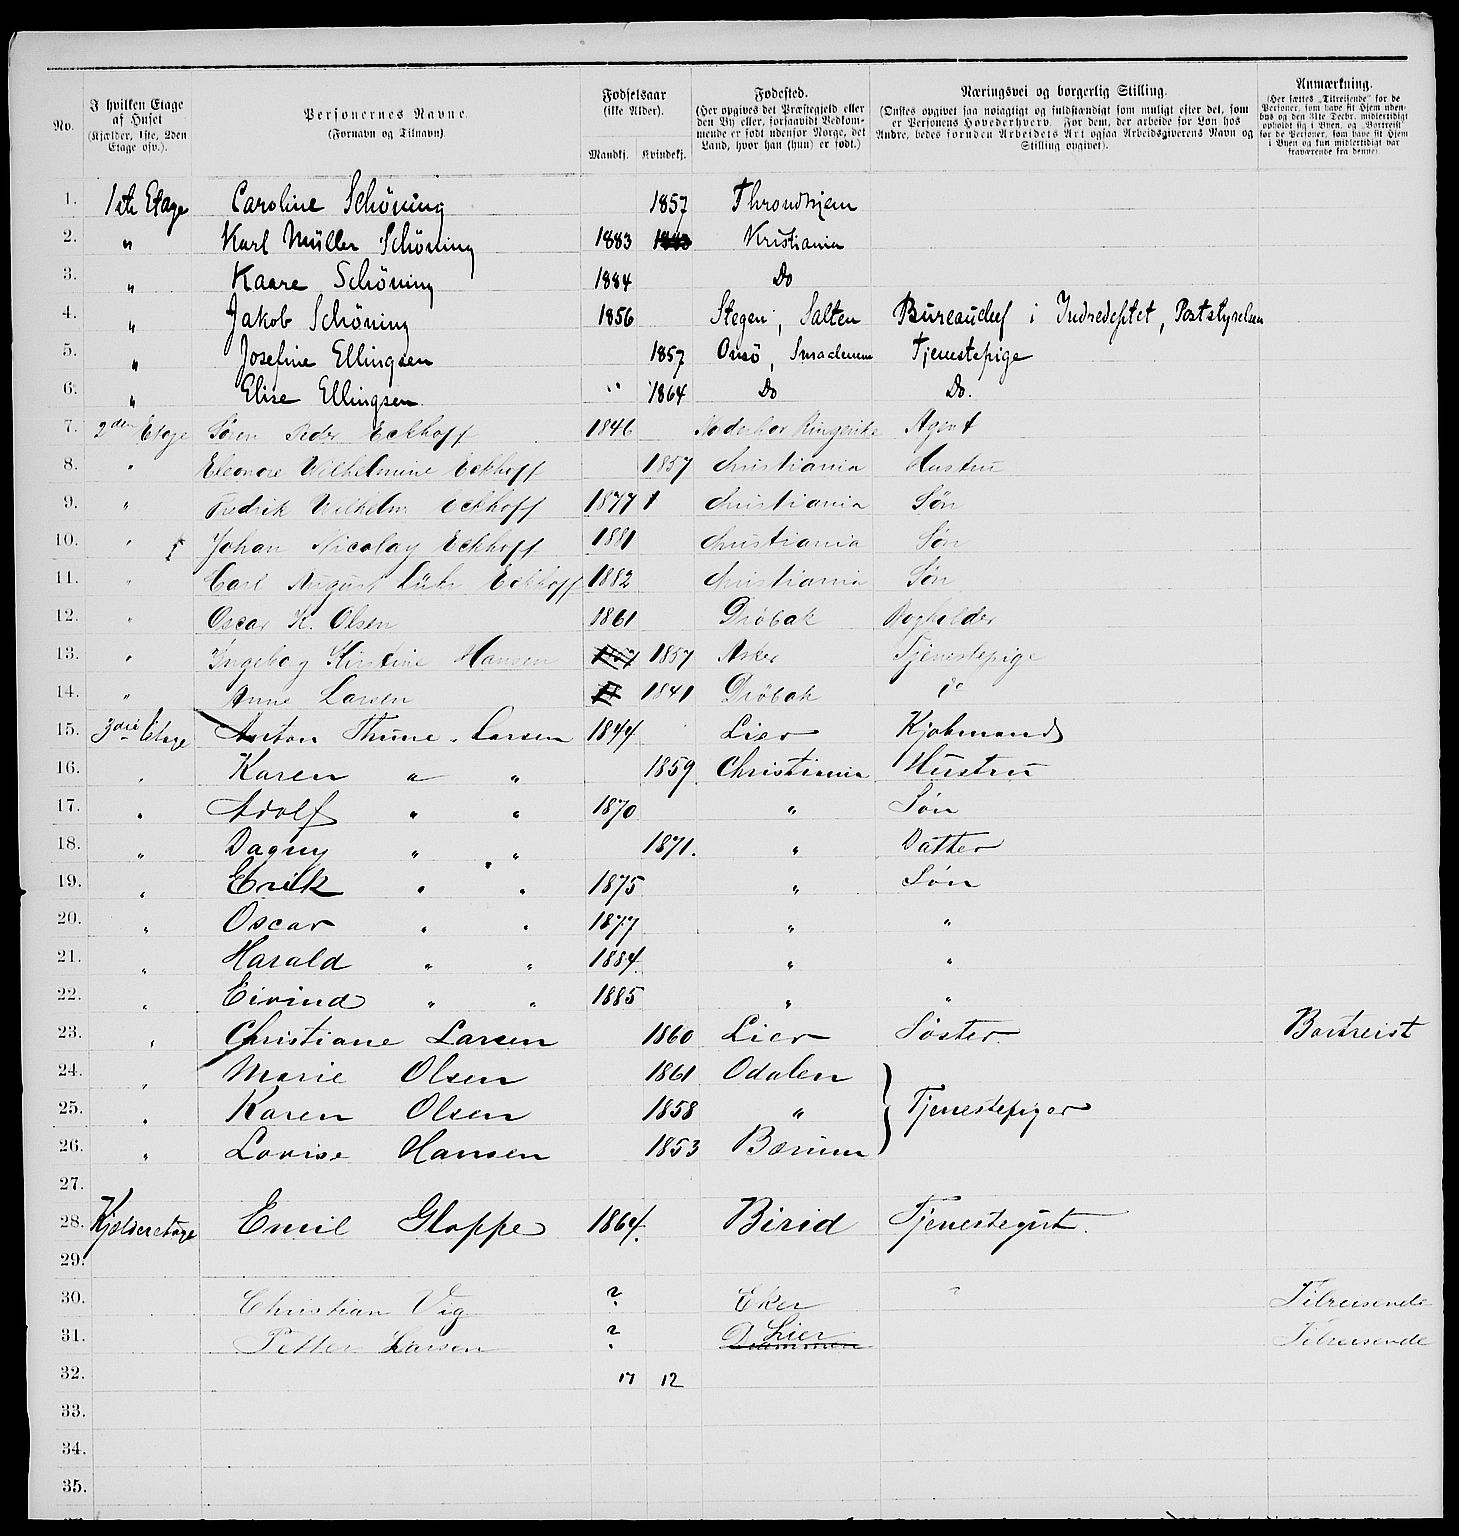 No. | I hvilken Etage af Huset (Kjælder, 1ste, 2den Etage osv.). | Personernes Navne. (Fornavn og Tilnavn). | Fødselsaar (ikke Alder). Mandkj. | Kvindekj. | Fødested. (Her opgives det Præstegjeld eller den By eller, forsaavidt Vedkommende er født udenfor Norge, det Land, hvor han (hun) er født.) | Næringsvei og borgerlig Stilling. (Ønskes opgivet saa nøiagtigt og fuldstændigt som muligt efter det, som er Personens Hovederhverv. For dem, der arbeide for Løn hos Andre, bedes foruden Arbeidets Art ogsaa Arbeidsgiverens Navn og Stilling opgivet). | Anmærkning. (Her sættes „Tilreisende" for de Personer, som have sit Hjem udenbys og den 31te Decbr. midlertidigt opholdt sig i Byen, og „Bortreist" for de Personer, som have sit Hjem i Byen og kun midlertidigt var fraværende fra denne).
1. 1ste Etage Caroline Schöning 1857 Throndhjem
2. " Karl Müller Schöning 1883 Kristiania
3. " Kaare Schöning 1884 Do
4. " Jakob Schöning 1856 Stegen, Salten Bureauchef i Indredeptet, Poststyrelsen
5. " Josefine Ellingsen 1857 Onsö, Smaalenene Tjenestepige
6. " Elise Ellingsen " 1864 Do Do.
7. 2den Etage Sören Peder Eckhoff 1846 Norderhov Ringerike Agent
8. " Eleonore Wilhelmine Eckhoff 1857 Christiania Hustru
9. " Fredrik Wilhelm Eckhoff 1877 1 Christiania Søn
10. " Johan Nicolay Eckhoff 1881 Christiania Søn
11. " Carl August Lühr Eckhoff 1882 Christiania Søn
12. " Oscar K. Olsen 1861 Drøbak Bogholder
13. " Ingeborg Kirstine Hansen 1857 Asker Tjenestepige
14. " Anne Larsen 1841 Drøbak
15. 3die Etage Anton Thune-Larsen 1844 Lier Kjøbmand
16. " Karen " " 1859. Christiania Hustru
17. " Adolf " " 1870 " Søn
18. " Dagny " " 1871. " Datter
19. " Erik " " 1875 " Søn
20. " Oscar " " 1877 " "
21. " Harald " " 1884. " "
22. " Eivind " " 1885 " "
23. " Christiane Larsen 1860 Lier Søster. Bortreist
24. " Marie Olsen 1861 Odalen
25. " Karen Olsen 1858 " } Tjenestepiger
26. " Lovise Hansen 1853 Bærum
27.
28. Kjelderetage Emil Gloppe 1864. Birid Tjenestegut.
29.
30. Christian Vig ? Eker " Tilreisende
31. Petter Larsen ? Drammen Lier Tilreisende
32. 17 12
33.
34.
35.